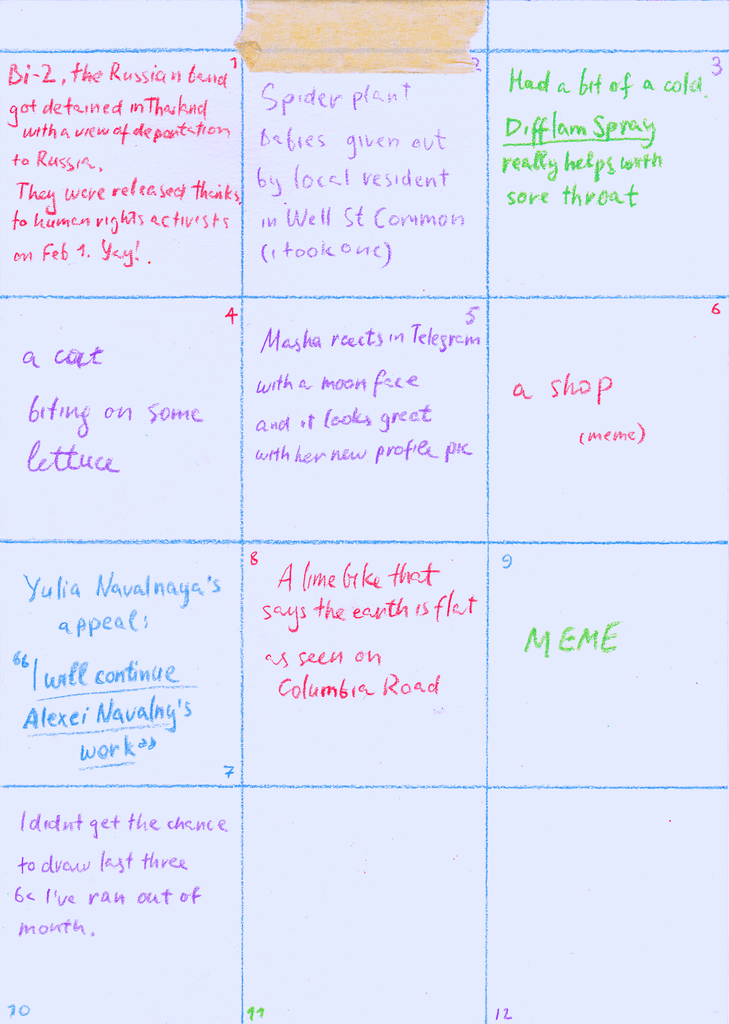 1
Bi-2, the Russian band
got detained in Thailand
with a view of deportation
to Russia.
They were released thanks
to human rights activists
on Feb 1. Yay!.
2
Spider plant
babies given out
by local resident
in Well St Common
(i took one)
3
Had a bit of a cold.
Difflam Spray
really helps with
sore throat
4
a cat
biting on some
lettuce
5
Masha reacts in Telegram
with a moon face
and it looks great
with her new profile pic
6
a shop
(meme)
Yulia Navalnaya's
appeal:
"I will continue
Alexei Navalny's
work"
7
8
A lime bike that
says the earth is flat
as seen on
Columbia Road
9
MEME
I didnt get the chance
to draw last three
bc I've ran out of
month.
10
11
12